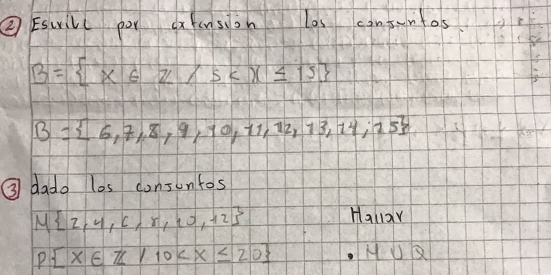 ② Escribe por extensión los consuntos.
B = { X ∈ Z / 5 < X ≤ 15}
B = { 6, 7, 8, 9, 10, 11, 12, 13, 14, 15}
③ dado los consuntos
M{2, 4, 6, 8, 10, 12} Hallar
P{X ∈ Z / 10 < X ≤ 20} • M U Q